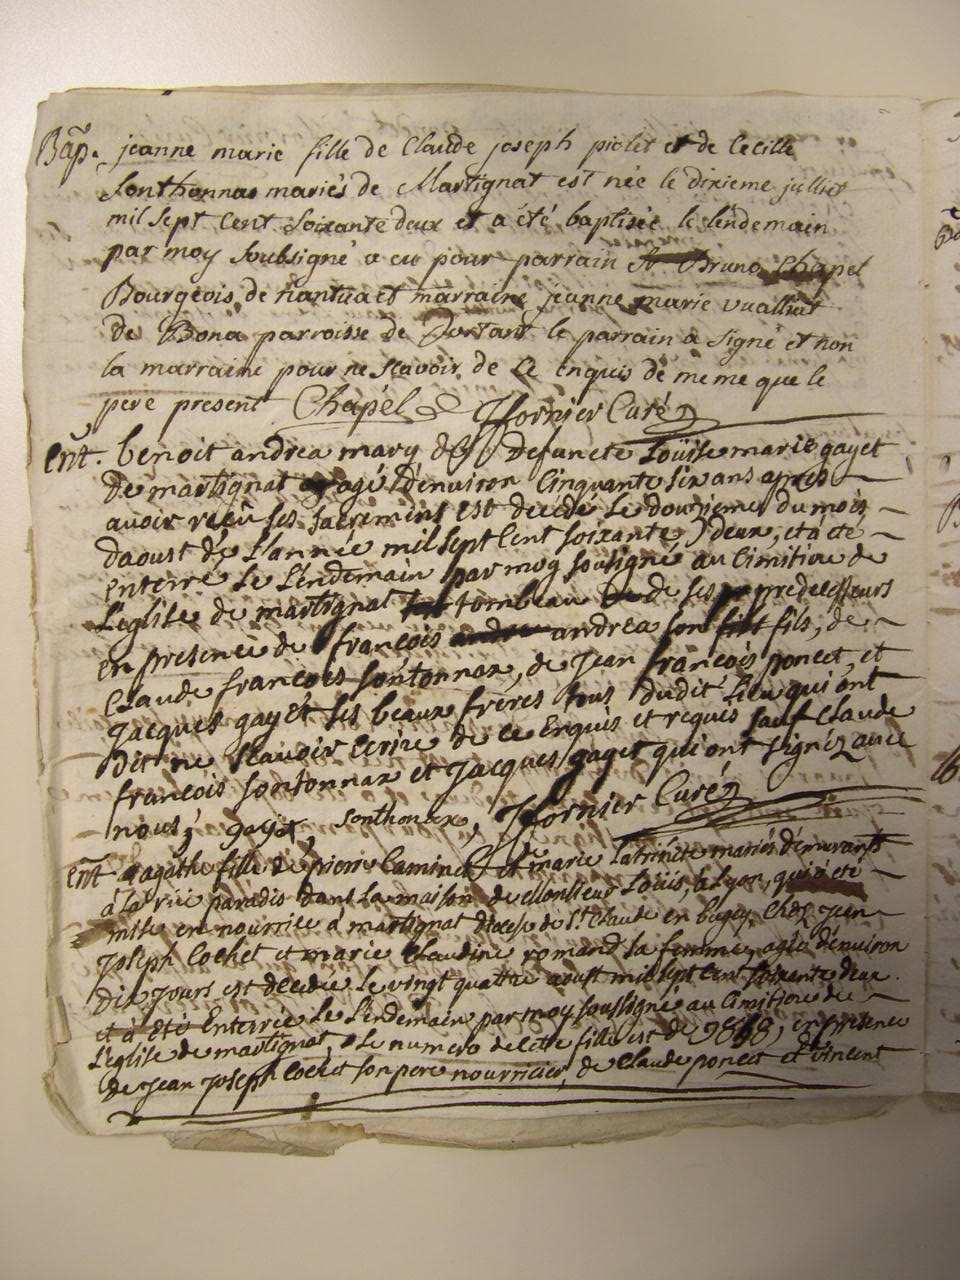 Bap. jeanne marie fille de Claude joseph piolet et de Cecille
Sonthonnas mariés de Martignat est née le dixieme julliet
mil sept cent soixante deux et a été baptisée le lendemain
par moy soubsigné a eu pour parrain Sr Bruno Chapel
Bourgeois de nantua et marraine jeanne marie vualliat
de Bona parroisse de Dortant le parrain a signé et non
la marraine pour ne scavoir de ce enquis de meme que le
pere present Chapel Fornier Curé
Ent. benoit andrea mary de defuncte Louise marie gayet
de martignat agé d'environ Cinquante six ans apres
avoir reçu ses sacremens est decedé Le douziemes du mois
daoust de L'année mil sept Cent soixante deux, et a été
enterré Le Lendemain par moy sousigné au Cimitiere de
L'eglise de martignat tombeau de ses predecesseurs
en presence de françois andrea son fils, de
Claude françois sontonnax, de Jean françois poncet, et
Jacques gayet ses beaux freres tous dudit Lieu qui ont
dit ne scavoir ecrire de ce Enquis et requis sauf Claude
françois sontonnax et Jacques gayet qui ont signéz avec
nous, gayet, sonthonax, Fornier Curé
Ent agathe fille de pierre Caminet et marie Latrinite mariés demurants
à La rüe paradis dans La maison de Monsieur Loüis, à Lyon, qui a été
mise en nourrice à martignat diocese de St. Claude en bugey Chez Jean
Joseph Cochet et marie Claudine romand sa femme, agée d'environ
dix Jours est decedée Le vingt quattre aoust mil sept Cent soixante deux.
et a été Enterrée Le Lendemain par moy soussigné au Cimitiere de
L'eglise de martignat, Le numero de cette fille est de 9868, en presence
de Jean Joseph Cochet son pere nourricier, de Claude poncet et vincent